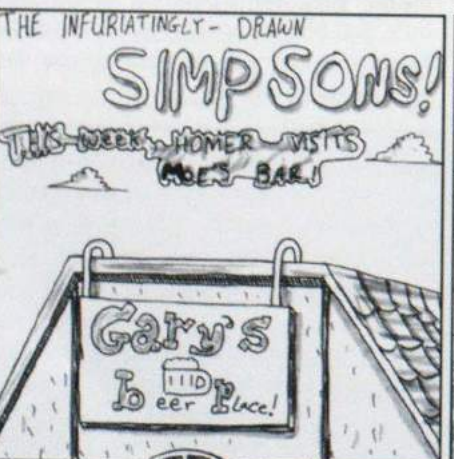 THE INFURIATINGLY- DRAWN
SIMPSONS!
THIS WEEK, HOMER VISITS
MOE'S BAR!
Gary's
beer Place!